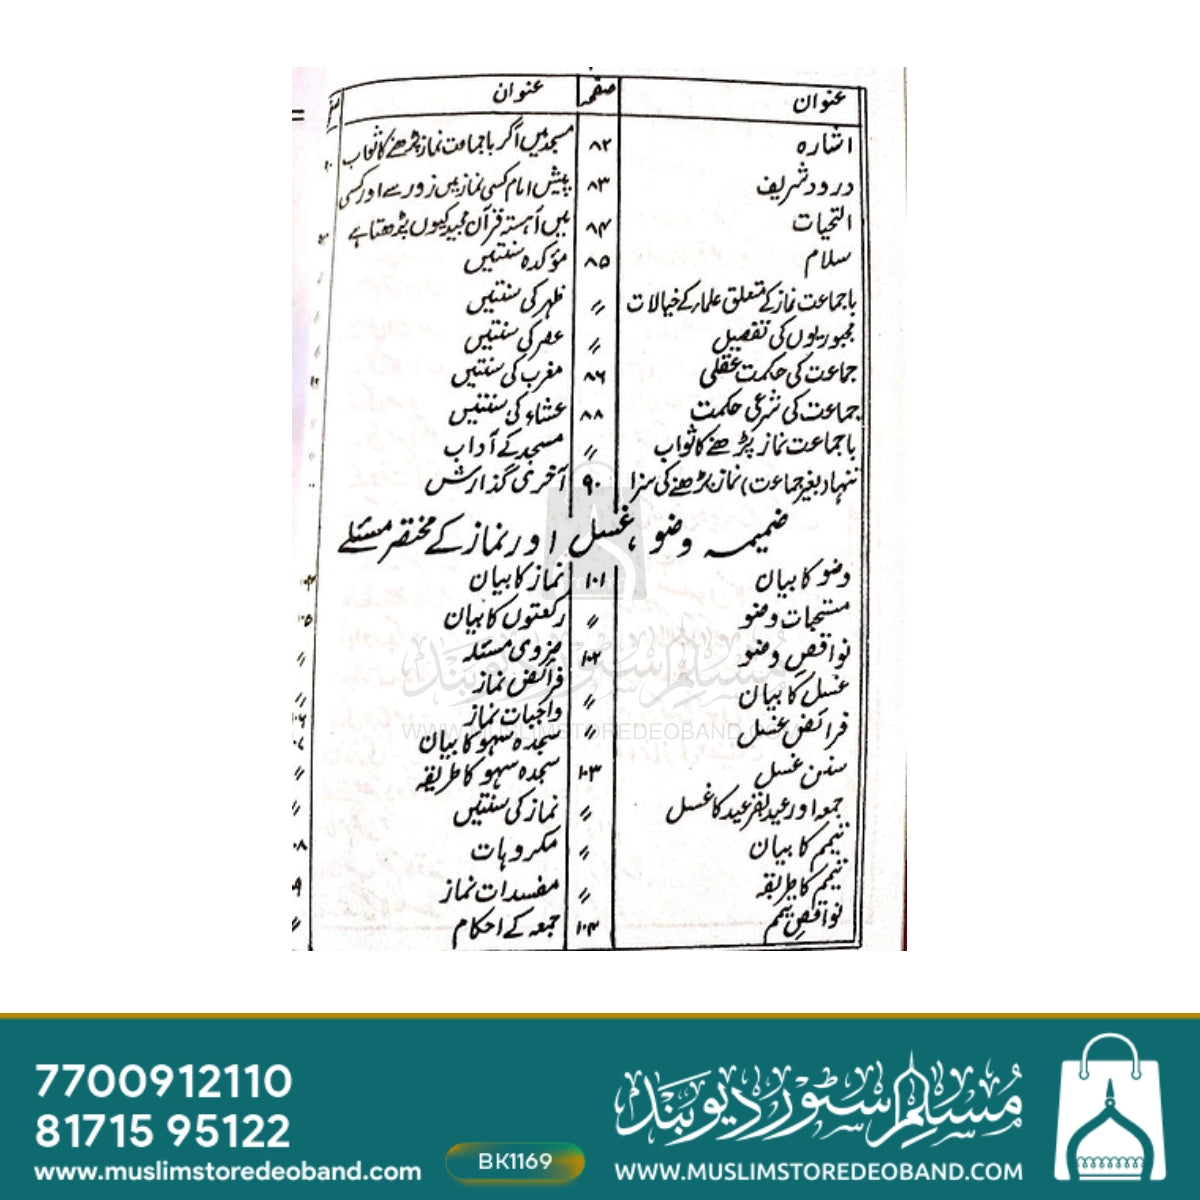 عنوان صفحہ عنوان
اشارہ ۸۲ مسجد میں اگر باجماعت نماز پڑھنے کا ثواب
درود شریف ۸۳ پیش امام کسی نماز میں زور سے اور کسی
التحیات ۸۴ میں آہستہ قرآن مجید کیوں پڑھتا ہے
سلام ۸۵ مؤکدہ سنتیں
باجماعت نماز کے متعلق علماء کے خیالات 〃 ظہر کی سنتیں
مجبوریوں کی تفصیل 〃 عصر کی سنتیں
جماعت کی حکمت عقلی ۸۶ مغرب کی سنتیں
جماعت کی شرعی حکمت ۸۸ عشاء کی سنتیں
باجماعت نماز پڑھنے کا ثواب 〃 مسجد کے آداب
تنہا (بغیر جماعت) نماز پڑھنے کی سزا ۹۰ آخری گذارش
ضمیمہ وضو، غسل اور نماز کے مختصر مسئلے
وضو کا بیان ۱۰۱ نماز کا بیان
مستحبات وضو 〃 رکعتوں کا بیان ۱۰۵
نواقصِ وضو ۱۰۲ ضروی مسئلہ 〃
غسل کا بیان 〃 فرائض نماز 〃
فرائض غسل 〃 واجبات نماز ۱۰۶
سنن غسل ۱۰۳ سجدہ سہو کا بیان
سجدہ سہو کا طریقہ 〃
جمعہ اور عید بقرعید کا غسل 〃 نماز کی سنتیں 〃
تیمم کا بیان 〃 مکروہات
تیمم کا طریقہ 〃 مفسدات نماز
نواقصِ تیمم ۱۰۴ جمعہ کے احکام 〃
مسلم سٹور دیوبند
WWW.MUSLIMSTOREDEOBAND.COM
7700912110
81715 95122
www.muslimstoredeoband.com
BK1169
مسلم سٹور دیوبند
WWW.MUSLIMSTOREDEOBAND.COM